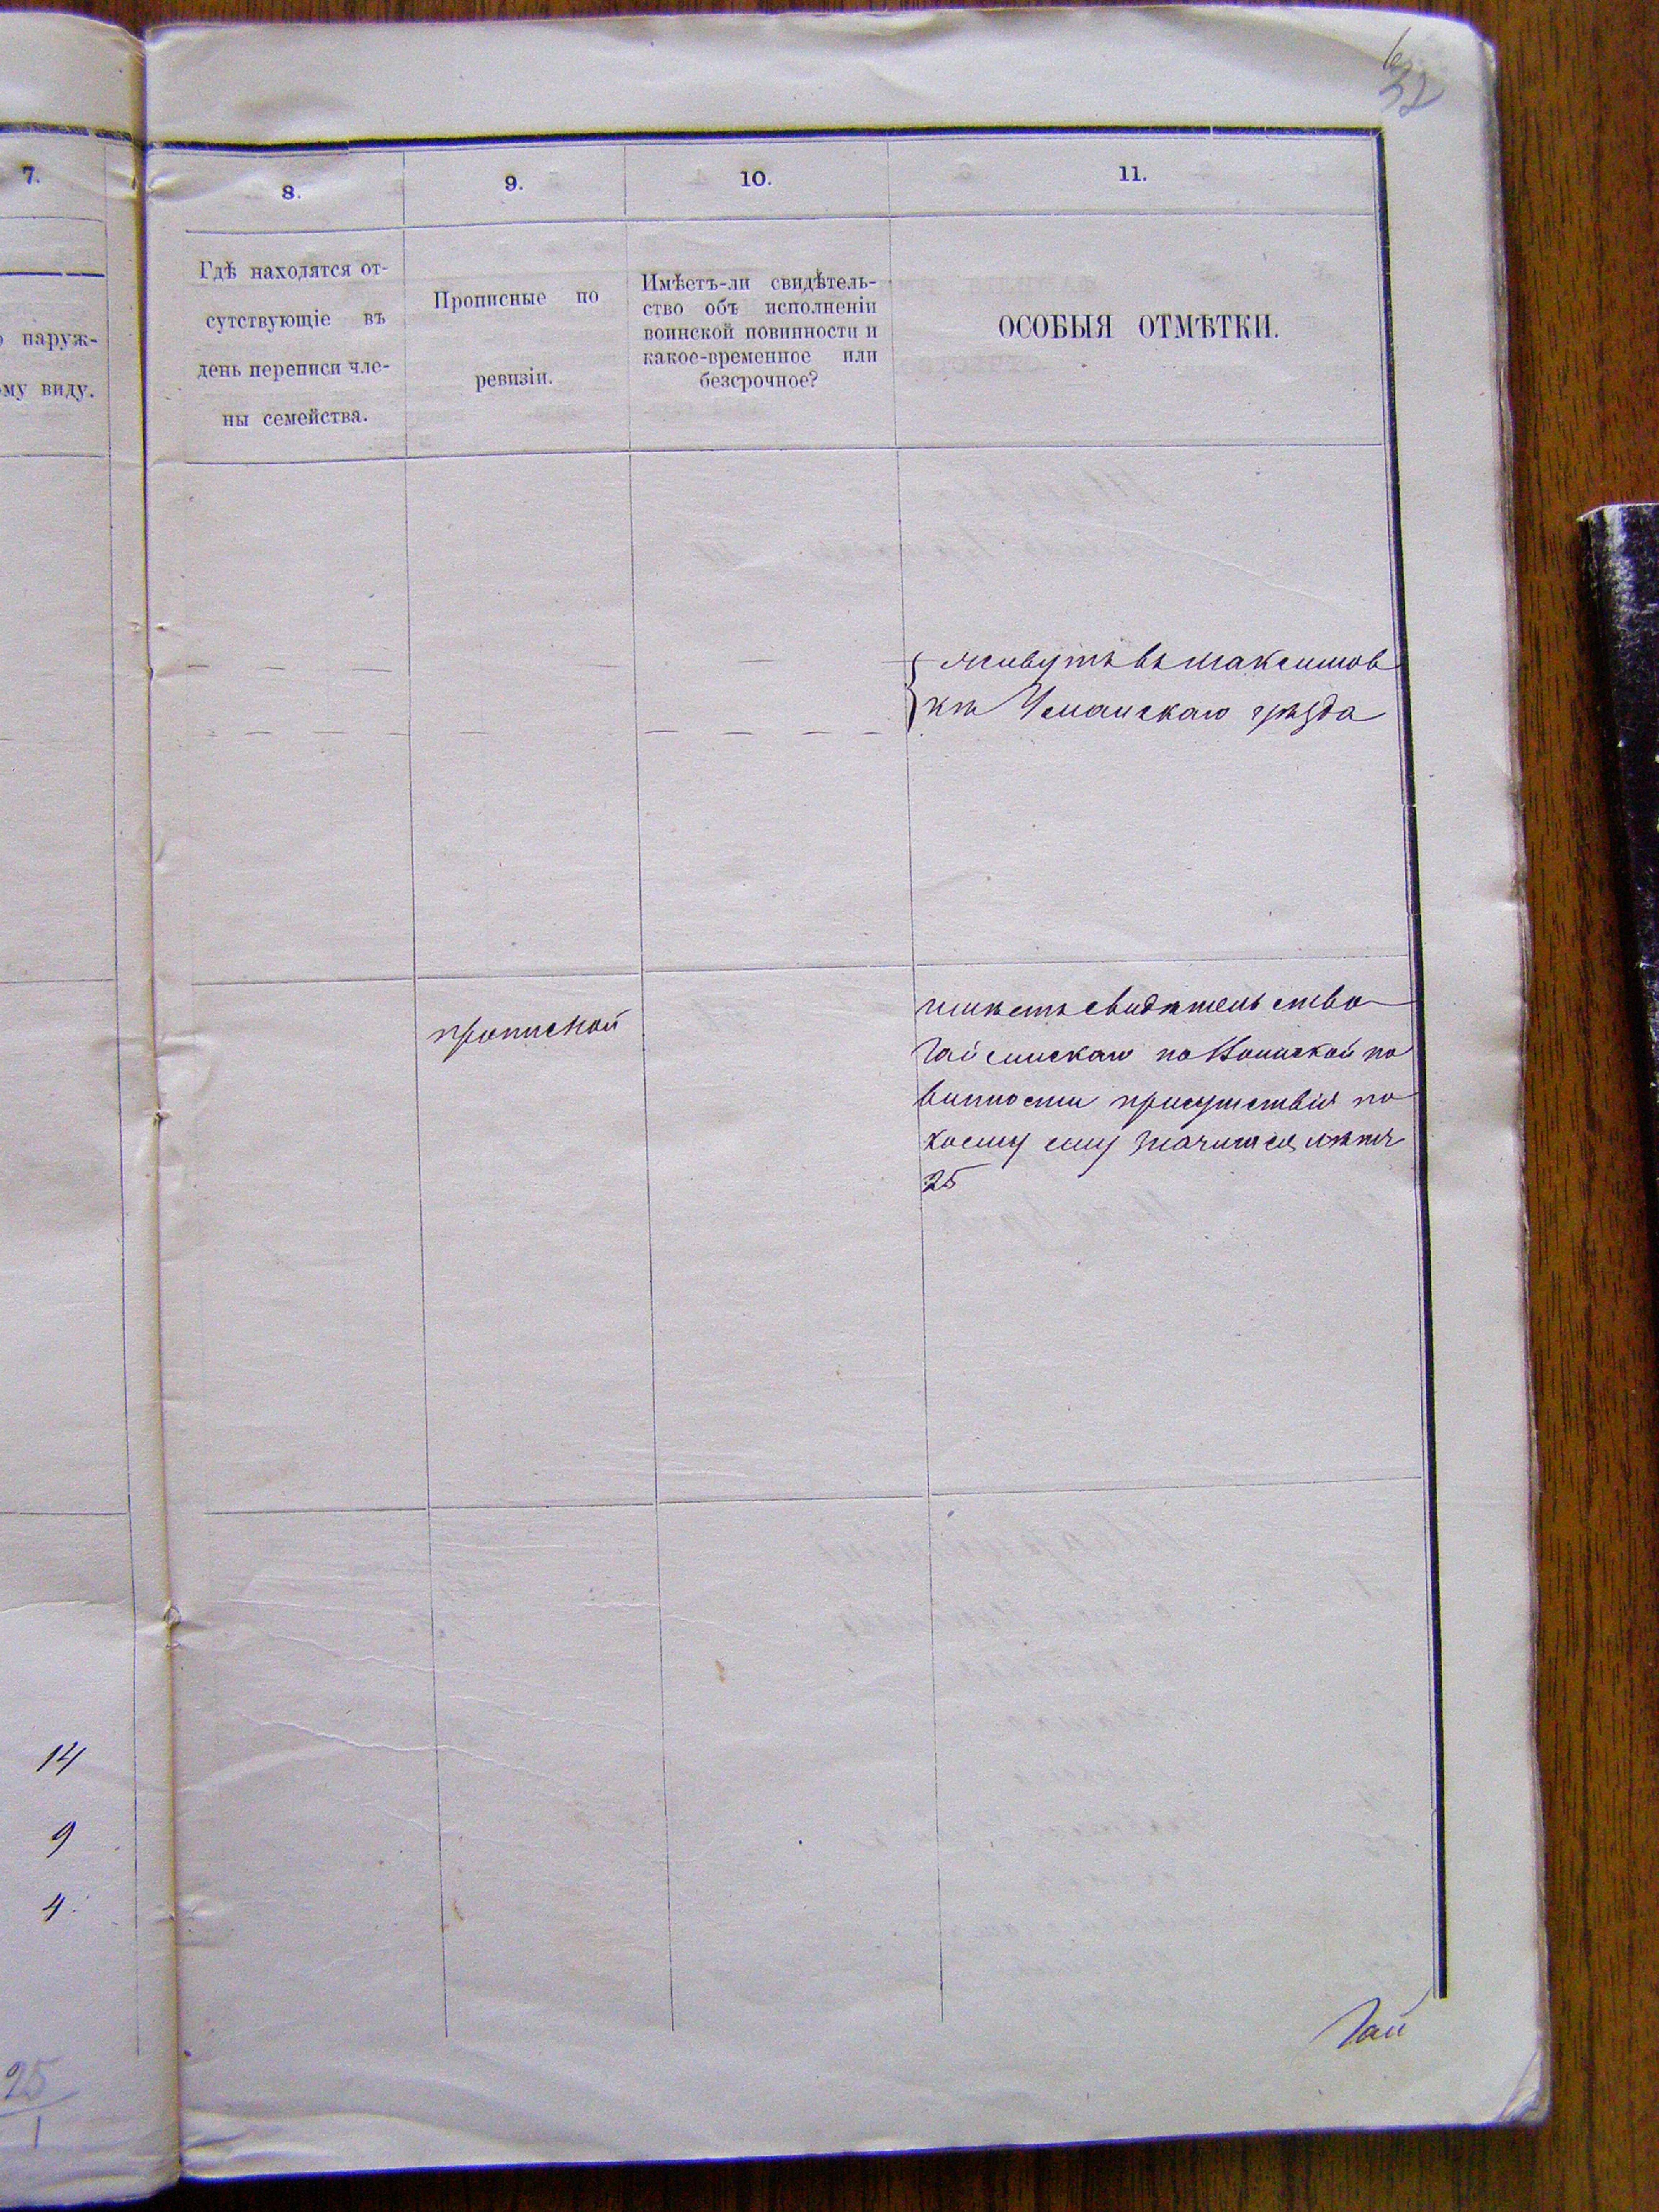 32
7.
8.
9.
10.
11.
наруж-
ому виду.
Гдѣ находятся от-
сутствующіе въ
день переписи чле-
ны семейства.
Прописные по
ревизіи.
Имѣетъ-ли свидѣтель-
ство объ исполненіи
воинской повинности и
какое-временное или
безсрочное?
ОСОБЫЯ ОТМѢТКИ.
живутъ въ Максимов
кѣ Уманскаго уѣзда
прописной
имѣетъ свидѣтельство
Гайсинскаго по Воинской по
винности присутствія по
коему ему значится лѣтъ
25
14
9
4
25
1
Гай